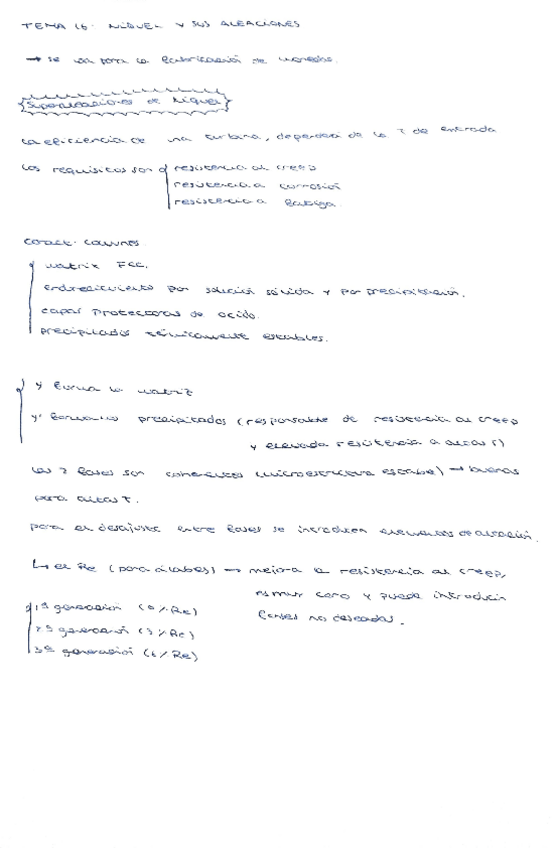 TEMA 16: NIQUEL Y SUS ALEACIONES
→ se usa para la fabricación de monedas.
Superaleaciones de Niquel
La eficiencia de una turbina, depende de la T de entrada
Los requisitos son resistencia al creep
resistencia a corrosión
resistencia a fatiga.
Caract. comunes
matriz FCC.
endurecimiento por solución sólida y por precipitación.
capas protectoras de óxido.
precipitados térmicamente estables.
γ forma la matriz
γ' formando precipitados (responsable de resistencia al creep
y elevada resistencia a altas T)
Las 2 fases son coherentes (microestructura estable) → buenas
para altas T.
para el desajuste entre fases se introducen elementos de aleación.
↳ el Re (para álabes) → mejora la resistencia al creep,
es muy caro y puede introducir
fases no deseadas.
1ª generación (0% Re)
2ª generación (3% Re)
3ª generación (6% Re)